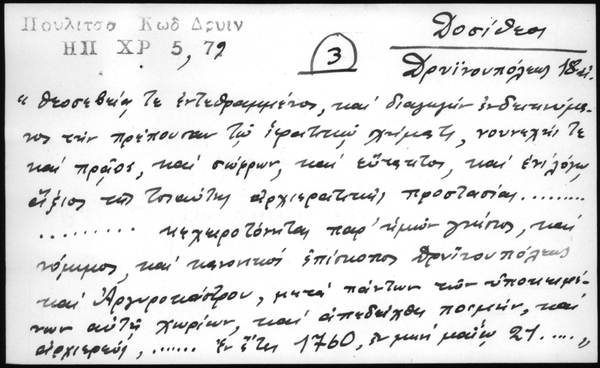 Πουλιτσα Κωδ Δρυιν
ΗΠ ΧΡ 5, 72
3
Δοσίθεος
Δρυϊνουπόλεως 18ος αι.
" θεοσεβείᾳ τε ἐντεθραμμένος, καί διαγωγήν ἐνδεικνύμε-
νος τήν πρέπουσαν τῷ ἱερατικῷ σχήματι, νουνεχής τε
καί πρᾷος, καί σώφρων, καί εὔτακτος, καί ἑνί λόγῳ
ἄξιος τῆς τοιαύτης ἀρχιερατικῆς προστασίας.........
......... κεχειροτόνηται παρ' ἡμῶν γνήσιος, καί
νόμιμος, καί κανονικός ἐπίσκοπος Δρυϊνουπόλεως
καί Ἀργυροκάστρου, μετά πάντων τῶν ὑποκειμέ-
νων αὐτῇ χωρίων, καί ἀπεδείχθη ποιμήν, καί
ἀρχιερεύς, ...... ἐν ἔτει 1760, ἐν μηνί μαΐῳ 21. .... "